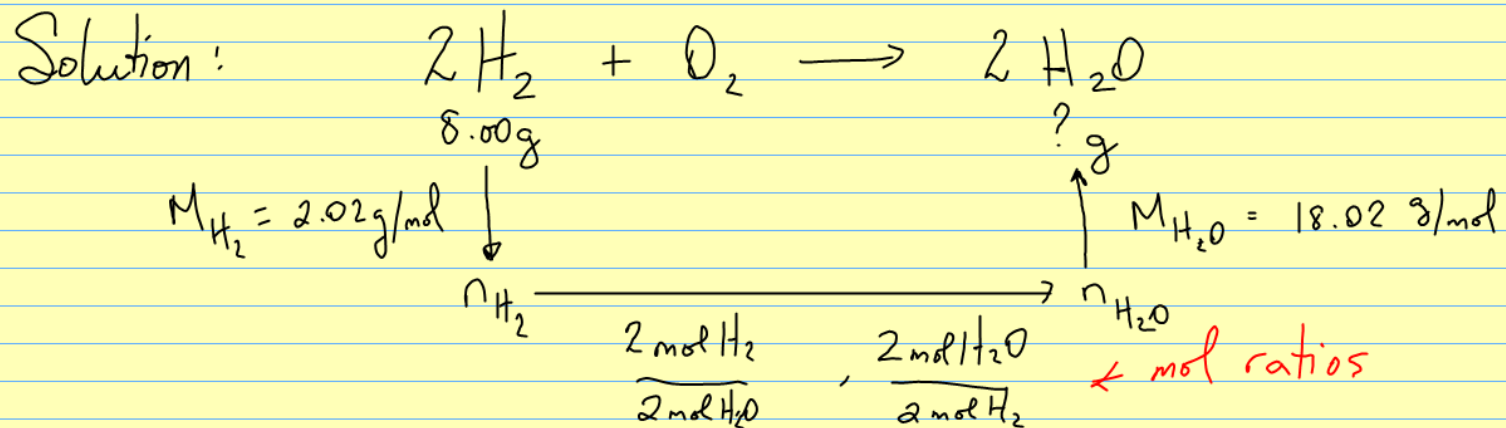 Solution: 2 H₂ + O₂ → 2 H₂O
8.00g ? g
M_H₂ = 2.02 g/mol ↓ ↑ M_H₂O = 18.02 g/mol
n_H₂ → n_H₂O
2 mol H₂ / 2 mol H₂O , 2 mol H₂O / 2 mol H₂ ← mol ratios